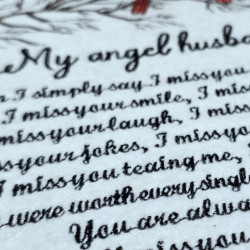 My angel husb
I simply say I miss you
I miss your smile, I miss
miss your laugh, I miss
your jokes, I miss you
I miss you teaing me,
were worth every singl
You are alwa
miss yo